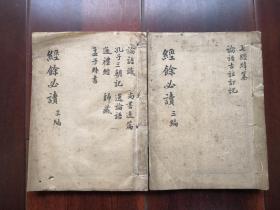 七經緯纂
論語古註訂記
經餘必讀 三編
論語讖 尚書逸篇
孔子三朝記 逸論語
逸禮經 師藏
孟子外書
經餘必讀 三編